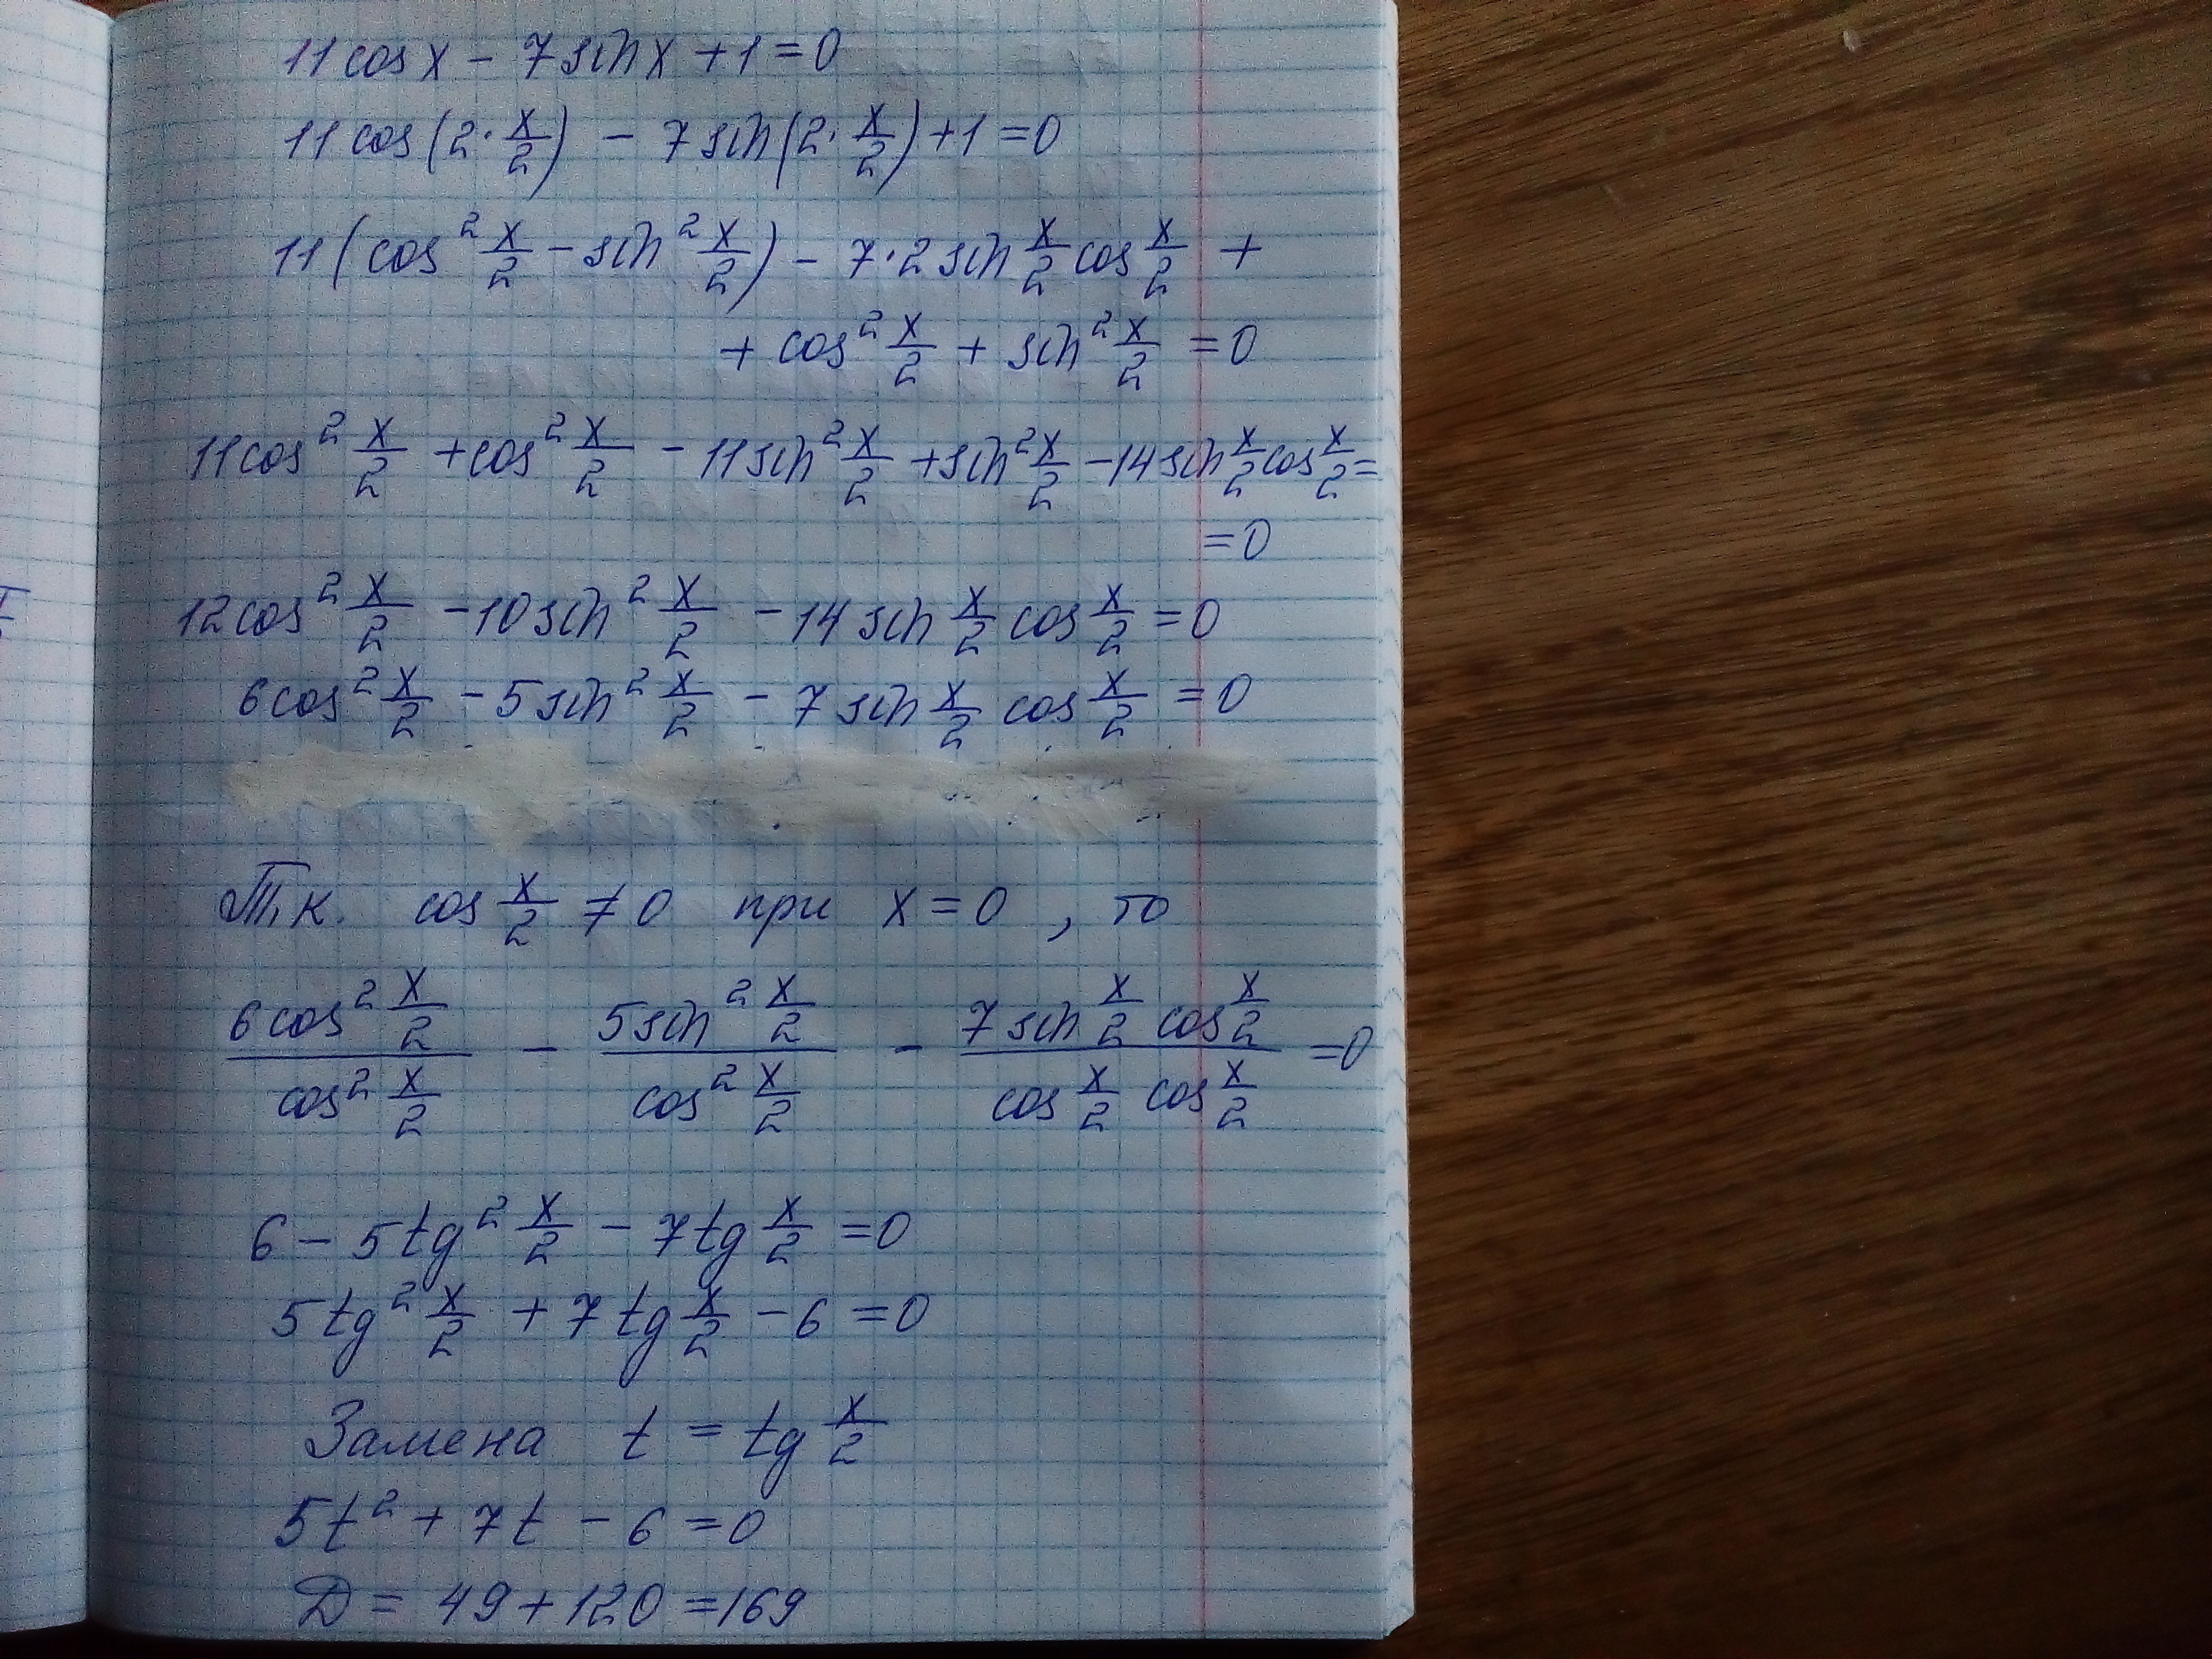 11 cos x - 7 sin x + 1 = 0
11 cos (2 · x/2) - 7 sin (2 · x/2) + 1 = 0
11 (cos² x/2 - sin² x/2) - 7 · 2 sin x/2 cos x/2 +
+ cos² x/2 + sin² x/2 = 0
11 cos² x/2 + cos² x/2 - 11 sin² x/2 + sin² x/2 - 14 sin x/2 cos x/2 =
= 0
12 cos² x/2 - 10 sin² x/2 - 14 sin x/2 cos x/2 = 0
6 cos² x/2 - 5 sin² x/2 - 7 sin x/2 cos x/2 = 0
Т.к. cos x/2 ≠ 0 при x = 0, то
6 cos² x/2 / cos² x/2 - 5 sin² x/2 / cos² x/2 - 7 sin x/2 cos x/2 / cos x/2 cos x/2 = 0
6 - 5 tg² x/2 - 7 tg x/2 = 0
5 tg² x/2 + 7 tg x/2 - 6 = 0
Замена t = tg x/2
5t² + 7t - 6 = 0
Д = 49 + 120 = 169